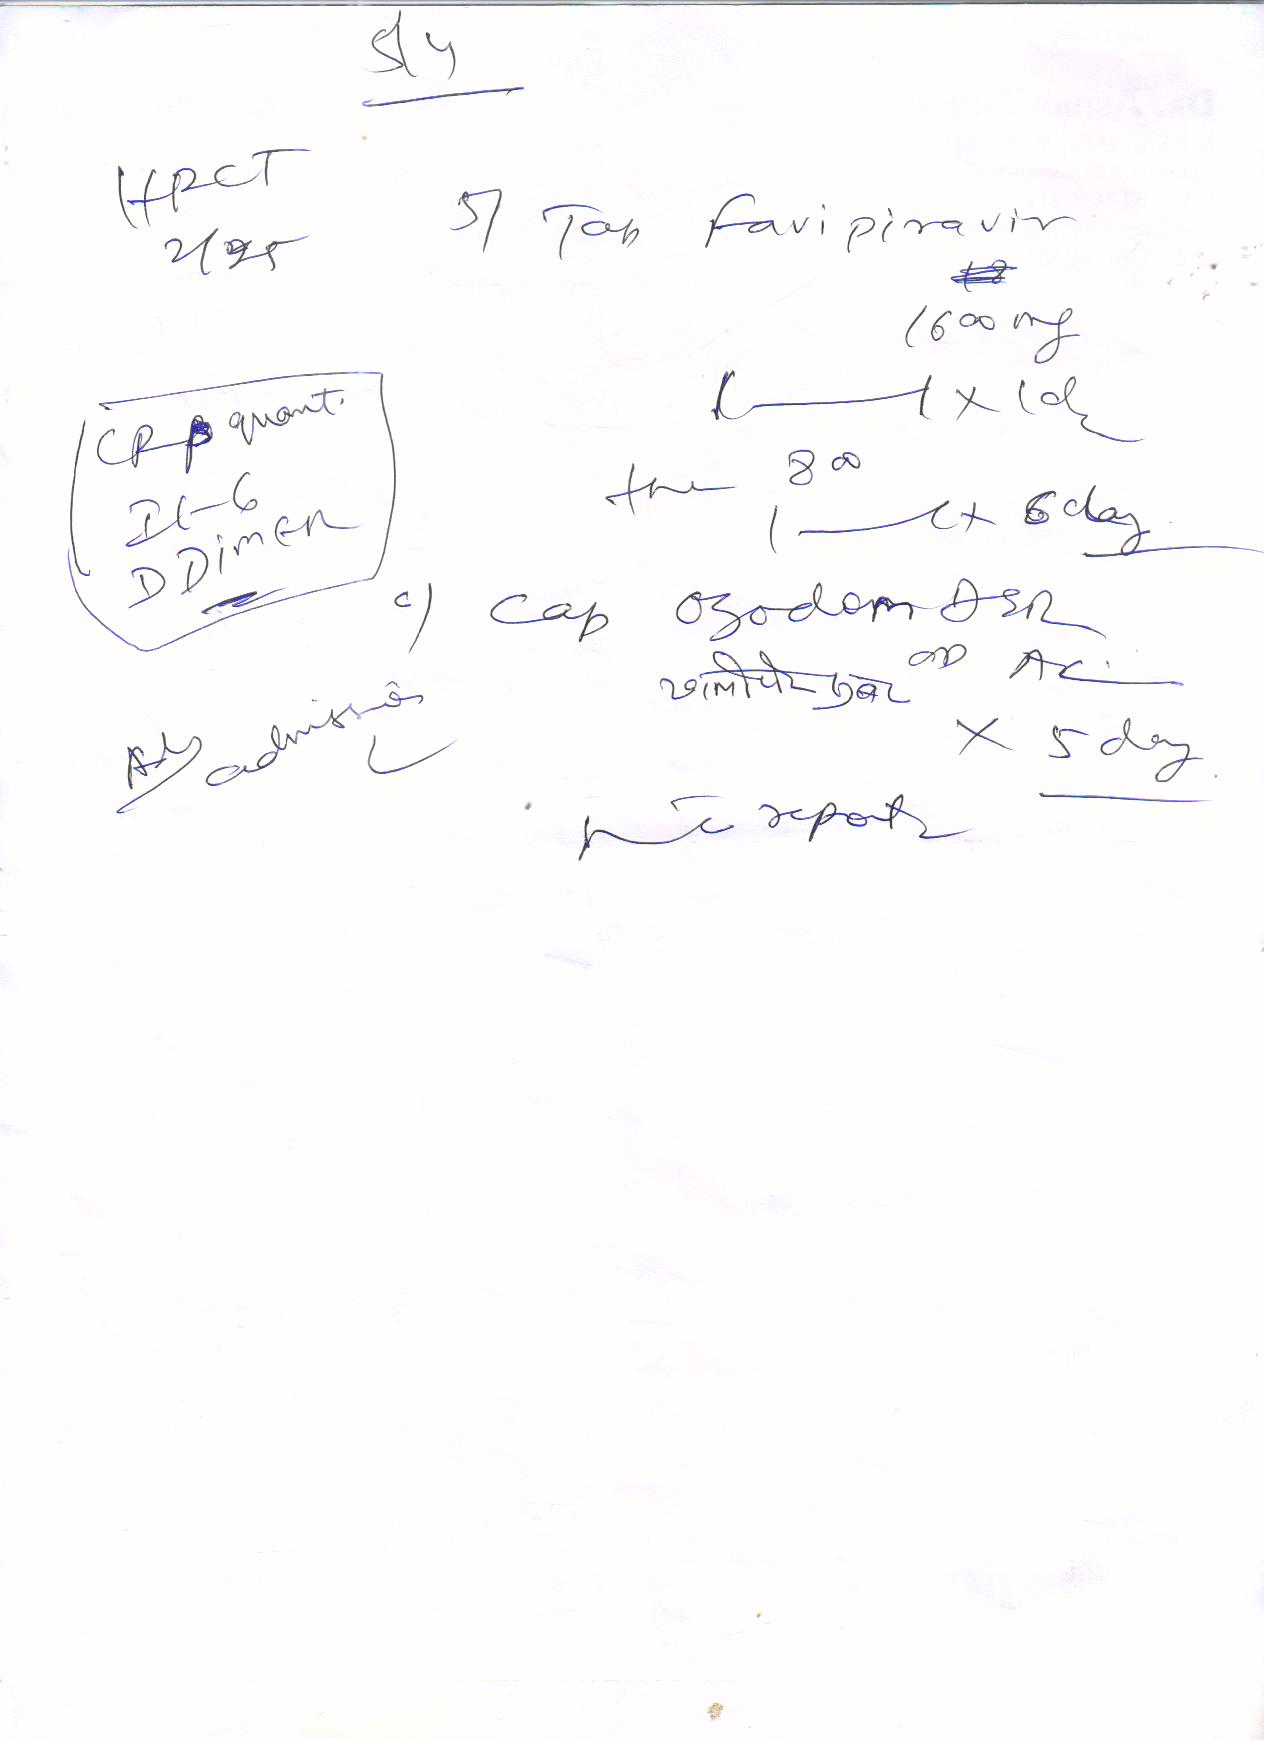 5/4
HRCT
2/25
5) Tab Favipiravir
1600 mg
1 — 1 x 1d
the 800
1 — 1 x 6 day
CRP quant.
IL-6
D DiMER
c) Cap Ozodom DSR
OD AC
x 5 day
Adv admission
reports